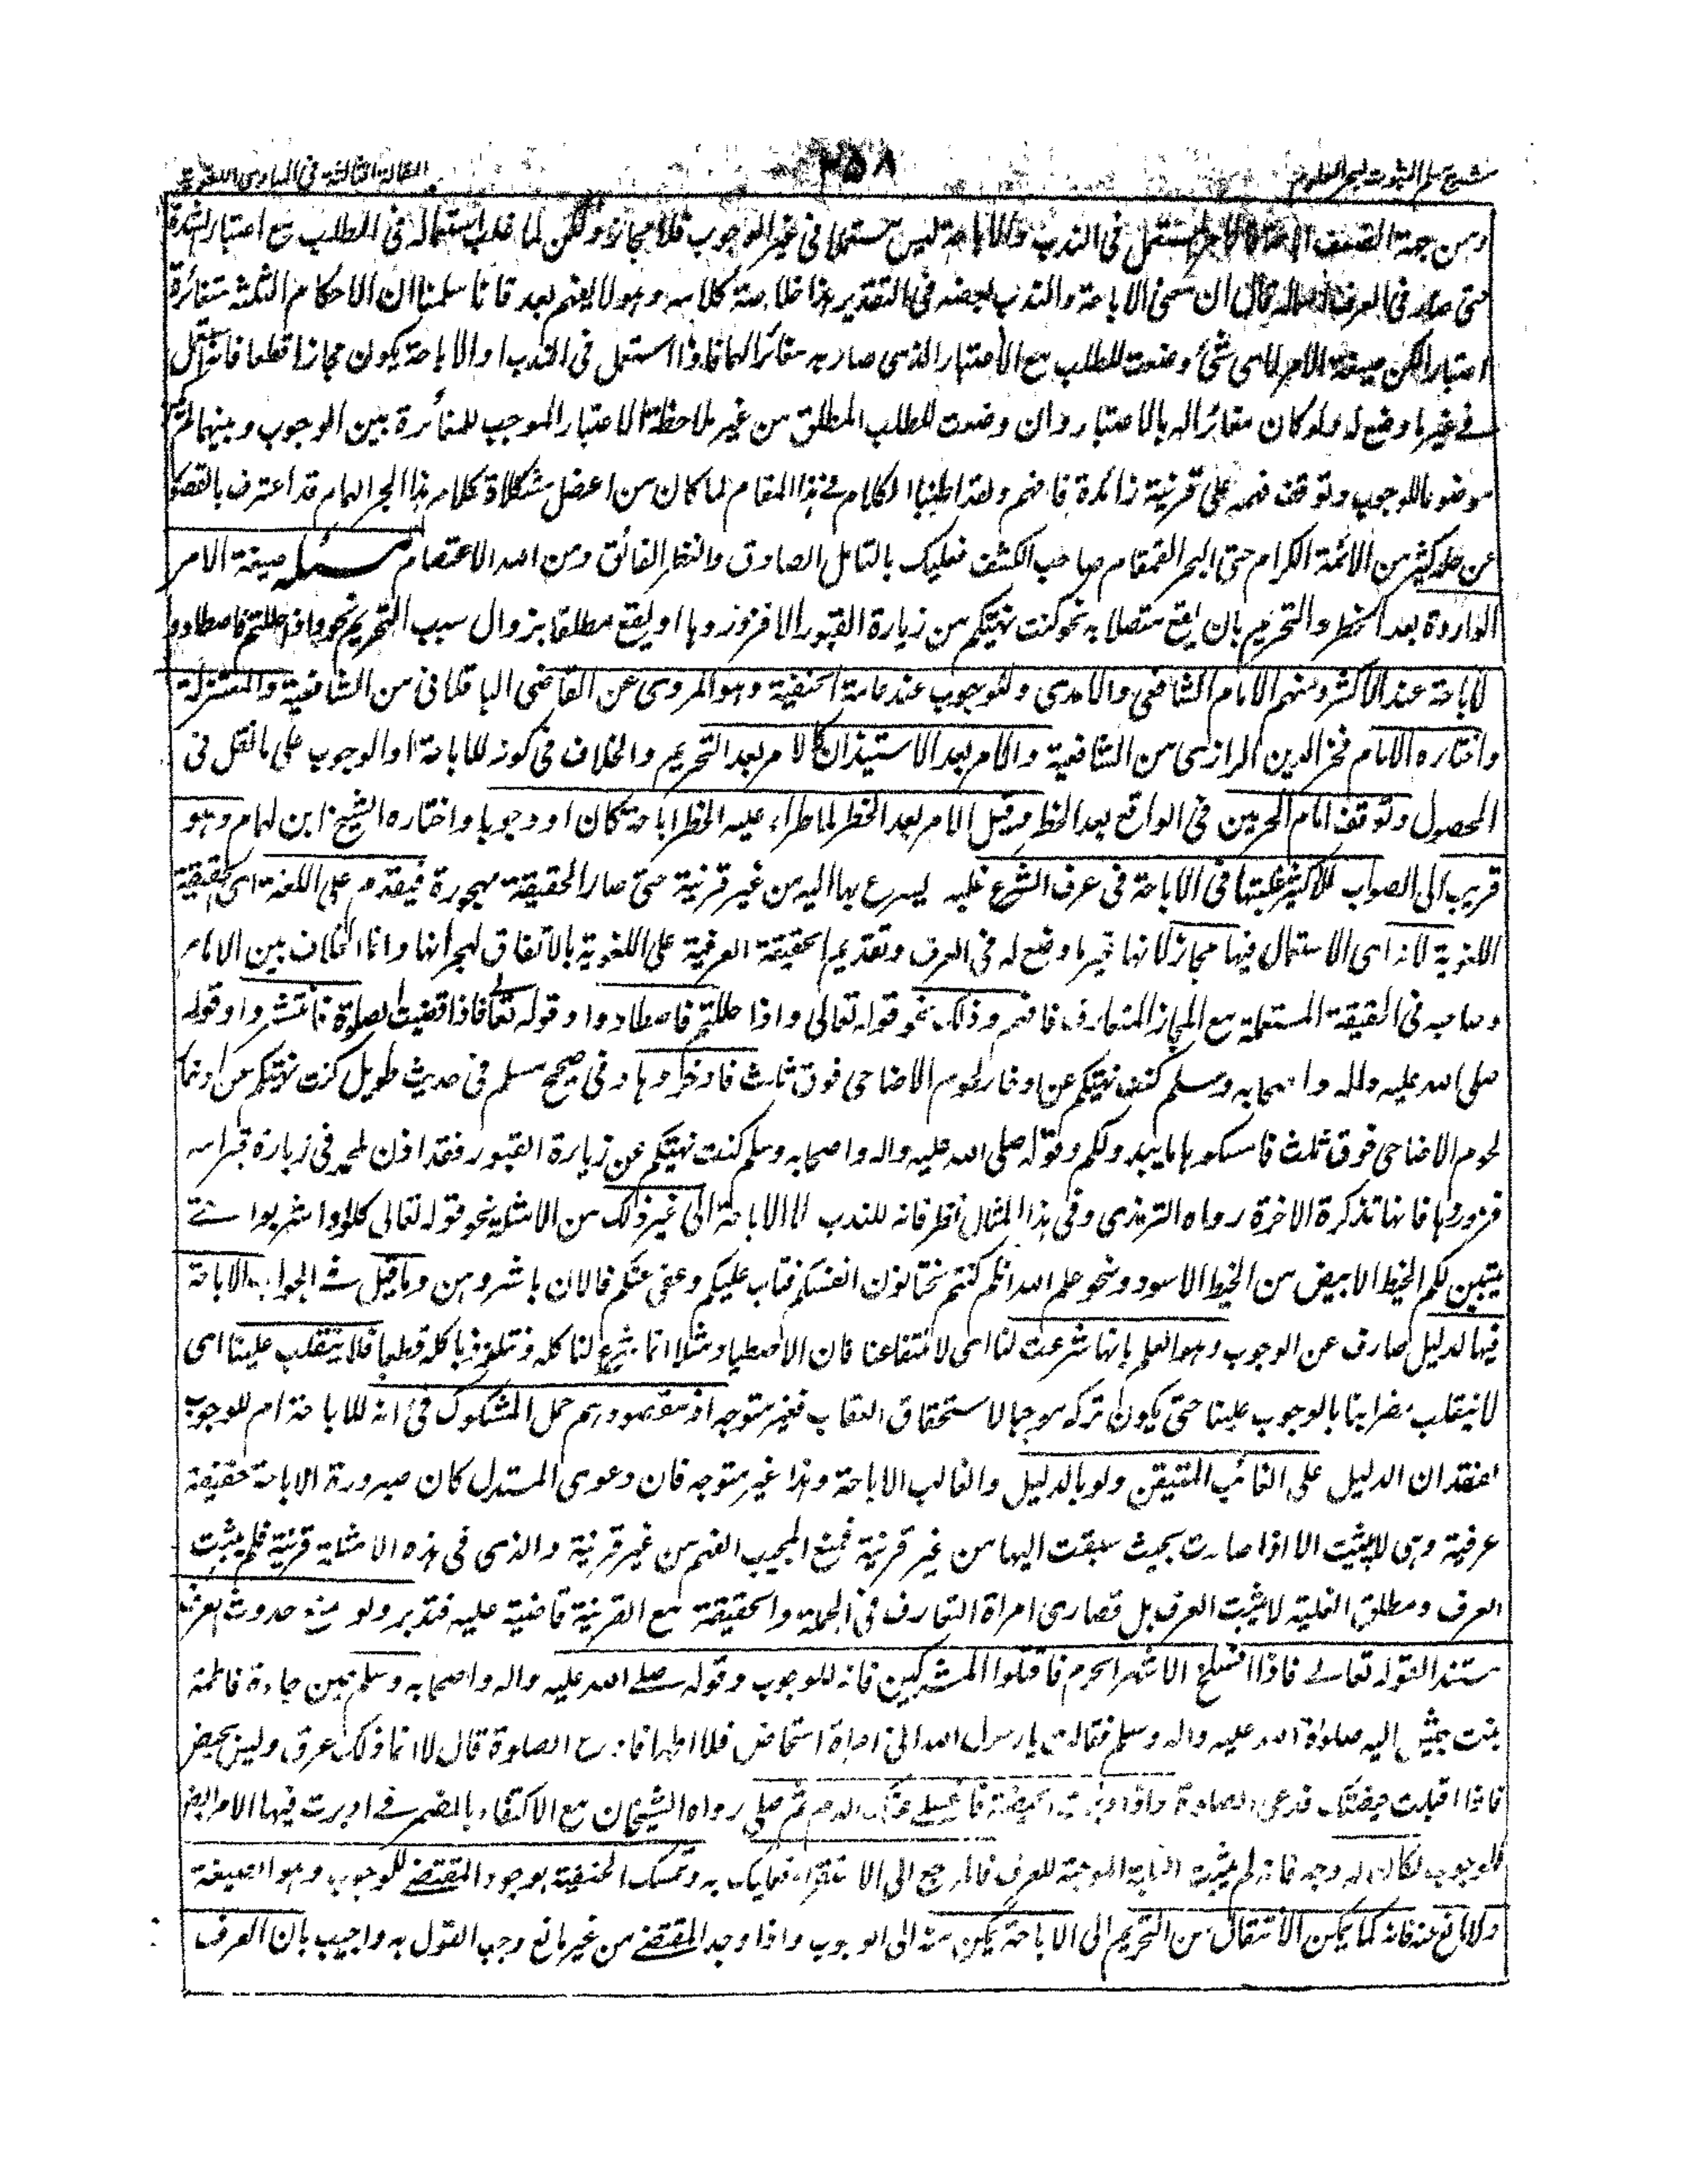 شرح مسلم الثبوت لبحر العلوم
٢٥٨
المقالة الثالثة في المبادى اللغوية
ومن جهة الضعف المستعمل في الندب والاباحة ليس مستعملا في غير الوجوب فلا مجاز ولكن لما غلب استعماله في الطلب مع اعتبار الشدة
حتى صار في العرف قال ان معنى الاباحة والندب بعضه في التقدير هذا خلاصة كلامه وهو لا يفهم بعد فانا سلمنا ان الاحكام الثلثة متغائرة
اعتبارا لكن صيغة الامر لاى شئ وضعت للطلب مع الاعتبار الذى صار به مغائرا لهما فاذا استعمل في الندب او الاباحة يكون مجازا قطعا فانه استعمل
في غير ما وضع له ولو كان مغائرا له بالاعتبار وان وضعت للطلب المطلق من غير ملاحظة الاعتبار الموجب للمغائرة بين الوجوب وبينهما لم يكن
موضوعا للوجوب وتوقف فهمه على قرينة زائدة فافهم ولقد اطنبنا الكلام في هذا المقام لما كان من اعضل مشكلاة كلام هذا الحبر الهمام قد اعترف بالقصور
عن حله كثير من الائمة الكرام حتى البحر القمقام صاحب الكشف فعليك بالتامل الصادق والنظر الفائق ومن الله الاعتصام مسئله صيغة الامر
الواردة بعد الحظر والتحريم بان يقع متصلا به نحو كنت نهيتكم من زيارة القبور الا فزوروها او يقع مطلقا بزوال سبب التحريم نحو واذا حللتم فاصطادوا
للاباحة عند الاكثر ومنهم الامام الشافعى والآمدى وللوجوب عند عامة الحنفية وهو المروى عن القاضى الباقلانى من الشافعية والمعتزلة
واختاره الامام فخر الدين الرازى من الشافعية والامر بعد الاستيذان كالامر بعد التحريم والخلاف في كونه للاباحة او الوجوب على ما نقل في
المحصول وتوقف امام الحرمين في الواقع بعد الحظر وقيل الامر بعد الحظر لما طراء عليه الحظر اباحة كان او وجوبا واختاره الشيخ ابن الهمام وهو
قريب الى الصواب للاكثر غلبتها في الاباحة في عرف الشرع غلبة يسرع بها اليه من غير قرينة حتى صار الحقيقة مهجورة فيقدم على اللغة اى الحقيقة
اللغوية لانه اى الاستعمال فيها مجاز لانها غير ما وضع له في العرف وتقديم الحقيقة العرفية على اللغوية بالاتفاق لهجرانها وانما الخلاف بين الامام
وصاحبيه في الحقيقة المستعملة مع المجاز المتعارف فافهم وذلك نحو قوله تعالى واذا حللتم فاصطادوا وقوله تعالى فاذا قضيت الصلوة فانتشروا وقوله
صلى الله عليه واله واصحابه وسلم كنت نهيتكم عن ادخار لحوم الاضاحى فوق ثلث فادخروها وفي صحيح مسلم في حديث طويل كنت نهيتكم عن ادخار
لحوم الاضاحى فوق ثلث فامسكوها ما يبد ولكم وقوله صلى الله عليه واله واصحابه وسلم كنت نهيتكم عن زيارة القبور فقد اذن لمحمد في زيارة قبر امه
فزوروها فانها تذكرة الاخرة رواه الترمذى وفي هذا المثال نظر فانه للندب لا الاباحة الى غير ذلك من الامثلة نحو قوله تعالى كلوا واشربوا حتى
يتبين لكم الخيط الابيض من الخيط الاسود ونحو علم الله انكم كنتم تختانون انفسكم فتاب عليكم وعفى عنكم فالان باشروهن وما قيل في الجواب الاباحة
فيها لدليل صارف عن الوجوب وهو العلم بانها شرعت لنا اى لانتفاعنا فان الاصطياد مثلا انما شرع لنا كله ونتلذذ باكله قطعا فلا ينقلب علينا اى
لا ينقلب مضرا بنا بالوجوب علينا حتى يكون تركه موجبا لاستحقاق العقاب فغير متوجه اذ مقصودهم حمل المشكوك في انه للاباحة ام للوجوب
لفقدان الدليل على الغائب المتيقن ولو بالدليل والغالب الاباحة وهذا غير متوجه فان دعوى المستدل كان صيرورة الاباحة حقيقة
عرفية وهى لا يثبت الا اذا صارت بحيث سبقت اليها من غير قرينة فمنع المجيب الفهم من غير قرينة والذى في هذه الامثلة قرينة فلم يثبت
العرف ومطلق الغلبة لا يثبت العرف بل قصارى امراة التعارف في الجملة والحقيقة مع القرينة قاضية عليه فتدبر ولو منع حدوث العرف
مستندا لقوله تعالى فاذا انسلخ الاشهر الحرم فاقتلوا المشركين فانه للوجوب وقوله صلى الله عليه واله واصحابه وسلم حين جاءة فاطمة
بنت حبيش اليه صلوة الله عليه واله وسلم فقالت يا رسول الله انى امراة استحاض فلا اطهر افادع الصلوة قال لا انما ذلك عرق وليس بحيض
فاذا اقبلت حيضتك فدعى الصلوة واذا ادبرت الحيضة فاغسلى عنك الدم ثم صلى رواه الشيخان مع الاكتفاء بالمضمر في ادبرت فيها الامر ايضا
للوجوب لكان له وجه فانه لم يثبت الغلبة الموجبة للعرف فالمرجع الى الاستقراء فعليك به وتمسك الحنفية بوجود المقتضى للوجوب وهو الصيغة
ولا مانع عنه فانه كما يمكن الانتقال من التحريم الى الاباحة يمكن منه الى الوجوب واذا وجد المقتضى من غير مانع وجب القول به واجيب بان العرف